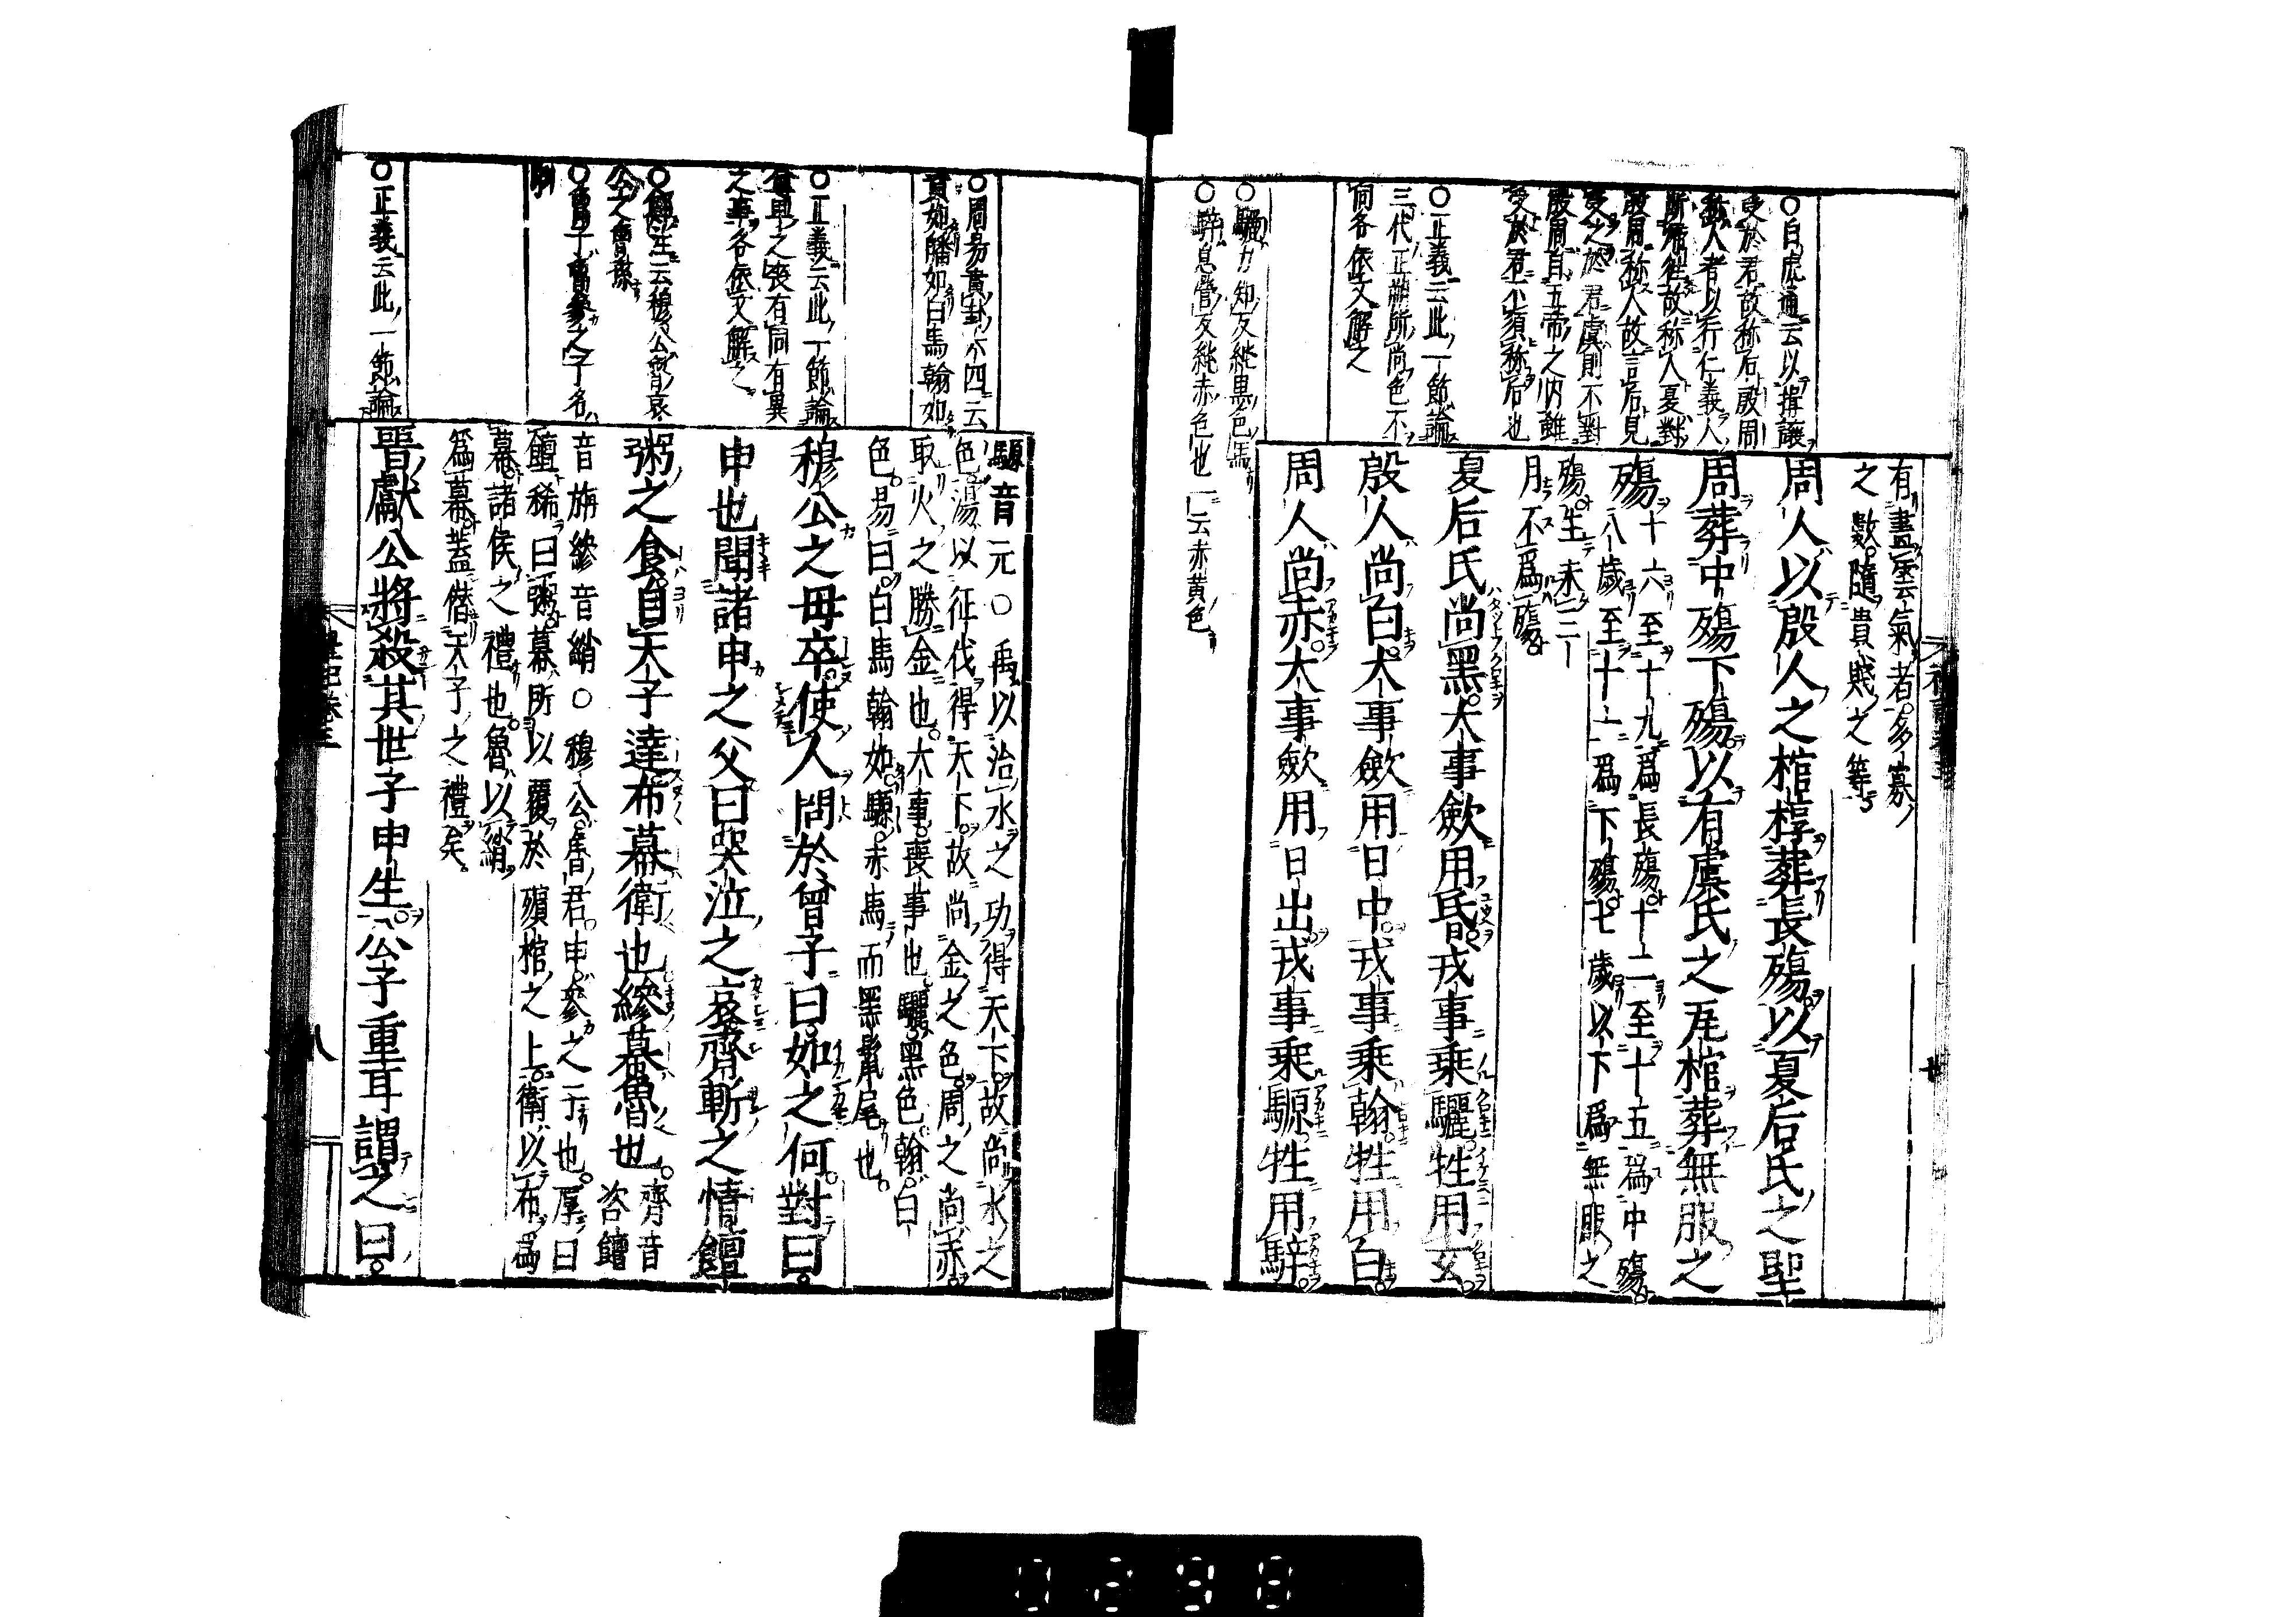 有畫雲氣者多寡
之數隨貴賤之等
周人以殷人之棺椁葬長殤以夏后氏之聖
周葬中殤下殤以有虞氏之瓦棺葬無服之
殤十六至十九爲長殤十二至十五爲中殤
八歲至十一爲下殤七歲以下爲無服之
殤生未三
月不爲殤
夏后氏尚黑大事歛用昏戎事乘驪牲用玄
殷人尚白大事歛用日中戎事乘翰牲用白
周人尚赤大事歛用日出戎事乘騵牲用騂
○白虎通云以揖讓
受於君故称后殷周
称人者以行仁義人
所帰往故称人夏對
殷周称人故言后見
受之於君虞則不對
殷周自五帝之内雖
受於君不須称后也
○正義云此一節論
三代正朔所尚色不
同各依文解之
○驪力知反純黒色馬
○騂息營反純赤色也一云赤黄色
騵音元○禹以治水之功得天下故尚水之
色湯以征伐得天下故尚金之色周之尚赤
取火之勝金也大事喪事也驪黑色翰白
色易曰白馬翰如騵赤馬而黑鬣尾也
穆公之母卒使人問於曾子曰如之何對曰
申也聞諸申之父曰哭泣之哀齊斬之情饘
粥之食自天子達布幕衛也縿幕魯也
齊音
咨饘
音旃縿音綃○穆公魯君申參之子也厚曰
饘稀曰粥幕所以覆於殯棺之上衛以布爲
幕諸侯之禮也魯以綃
爲幕蓋僭天子之禮矣
晋獻公將殺其世子申生公子重耳謂之曰
○周易賁卦六四云
賁如皤如白馬翰如
○正義云此一節論
尊卑之喪有同有異
之事各依文解之
云穆公魯哀
公之曾孫
○曾子曾參之子名
申
○正義云此一節論
禮記卷三
八